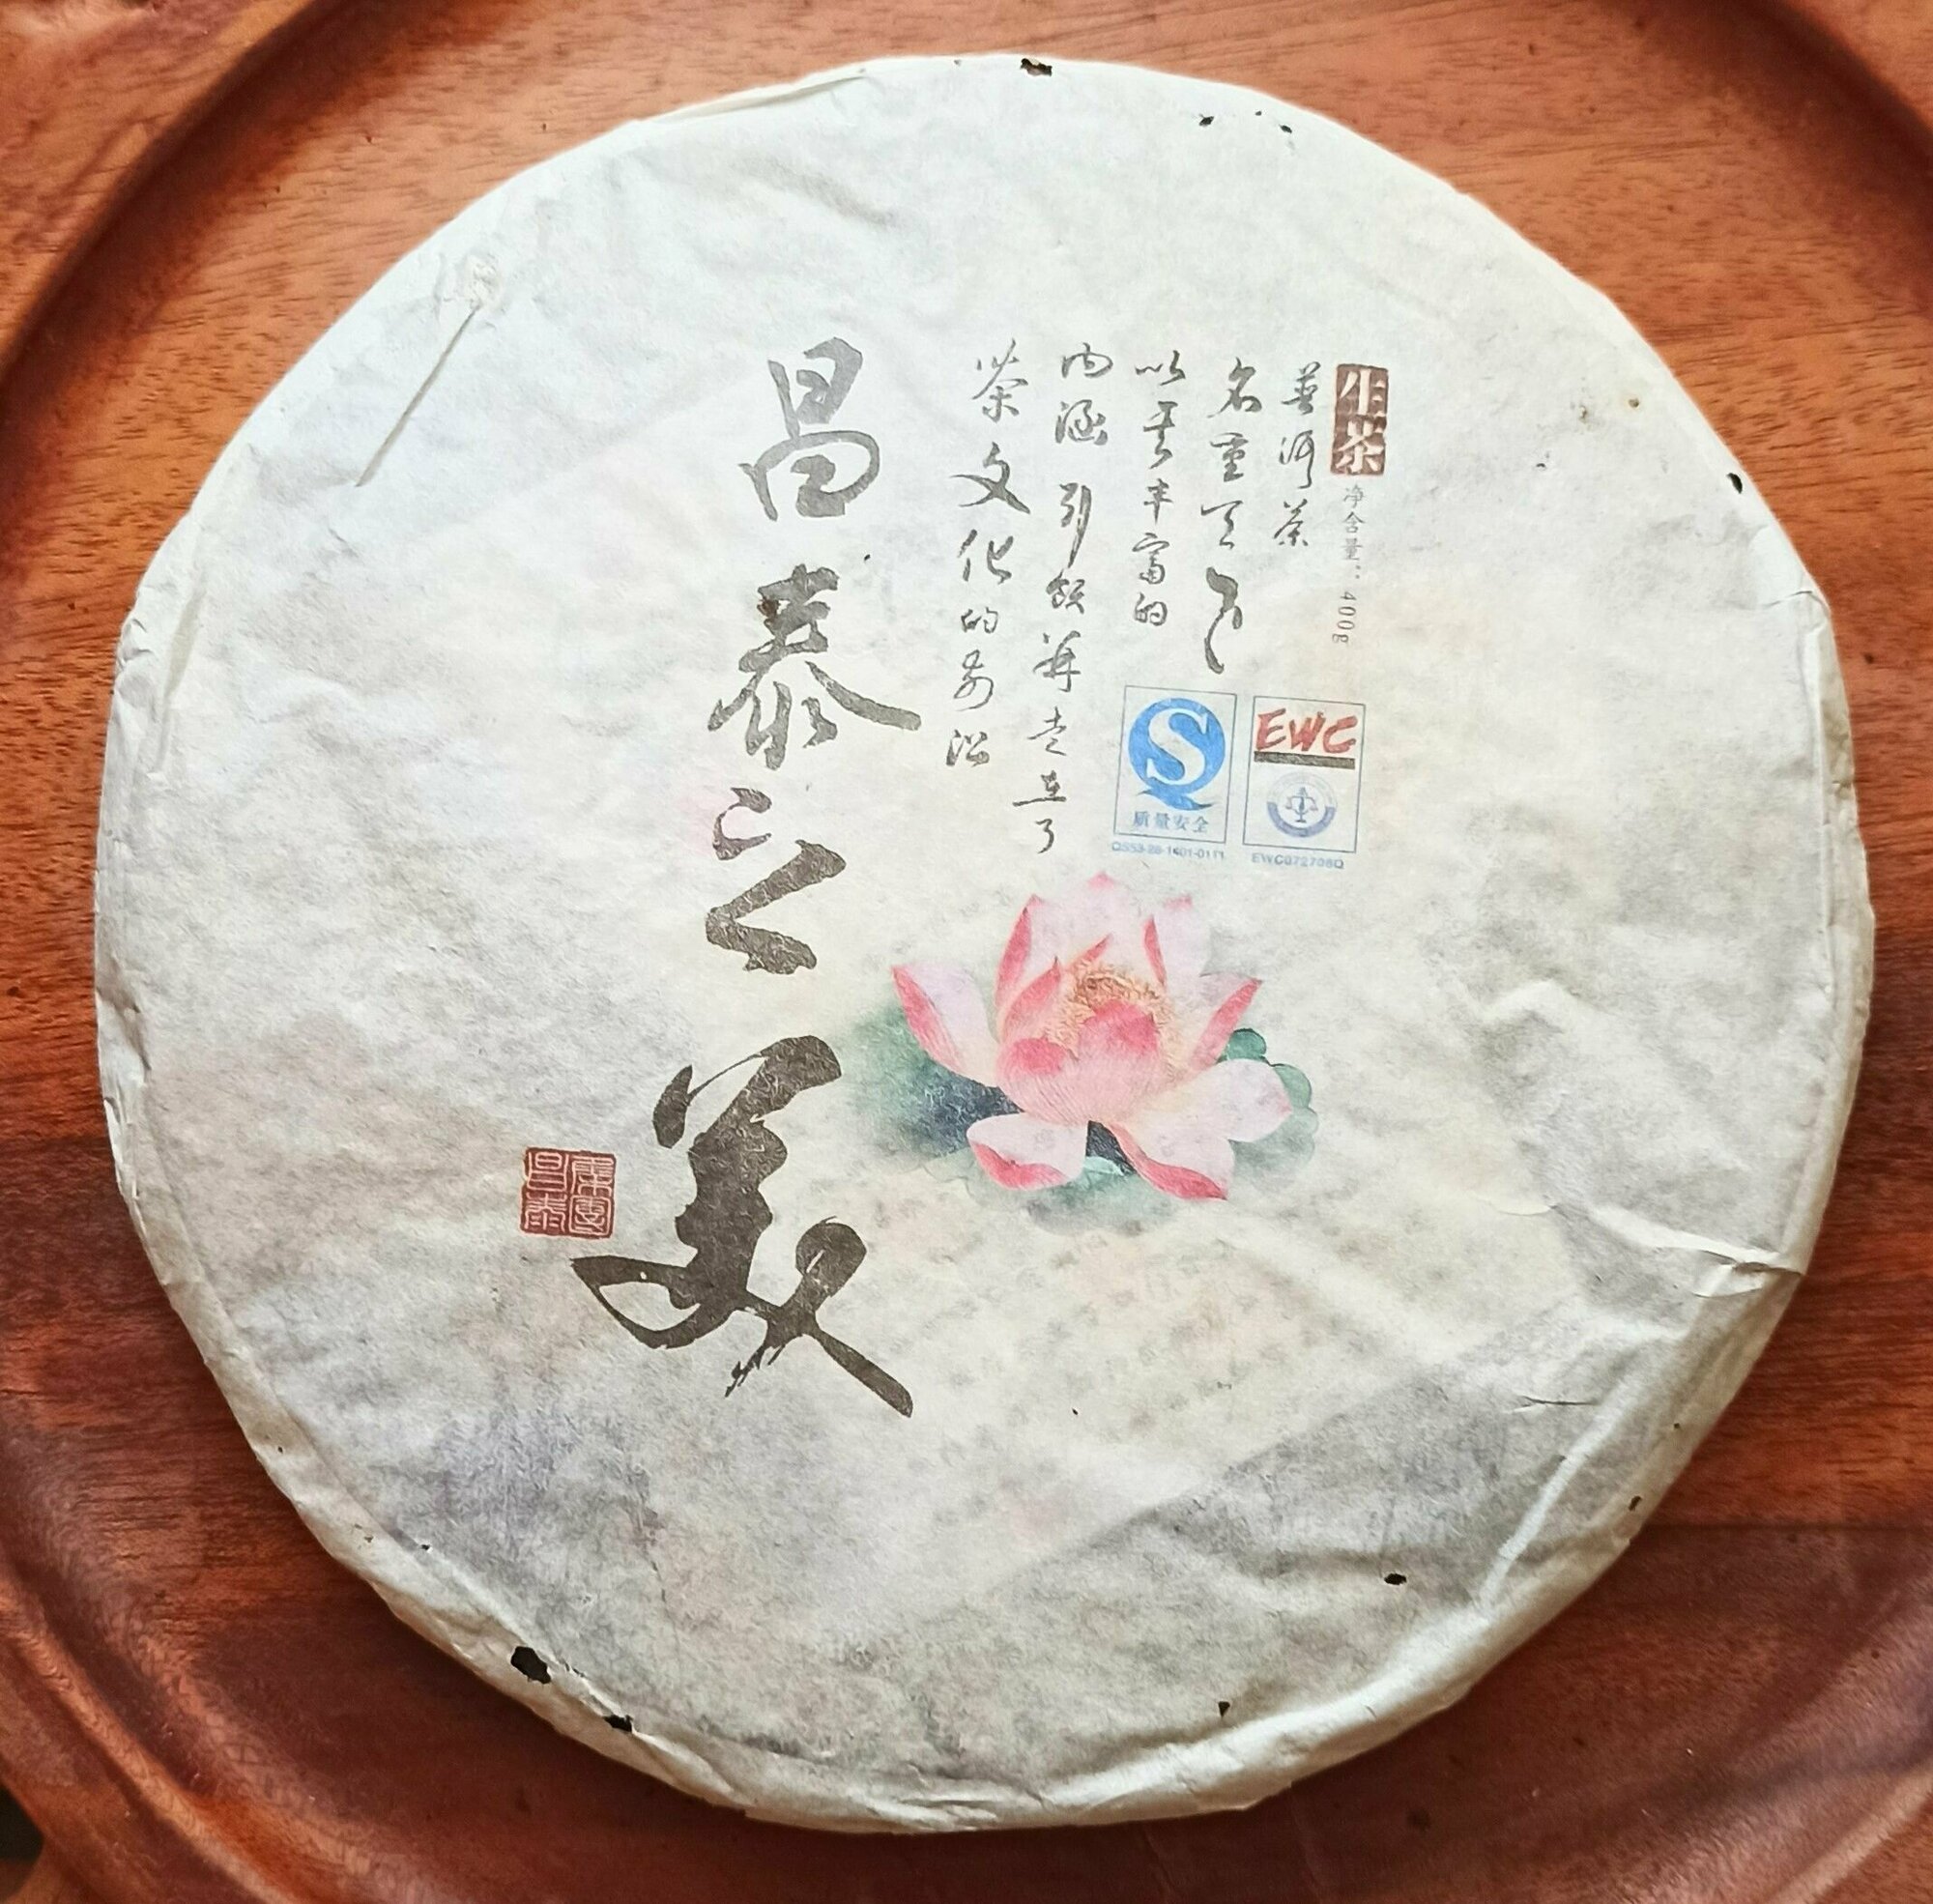 生茶
净含量:400g
普洱茶
名重天下
以其丰富的
内涵引领并走在了
茶文化的前沿
昌泰之美
昌泰
质量安全
EWC
EWC072708Q